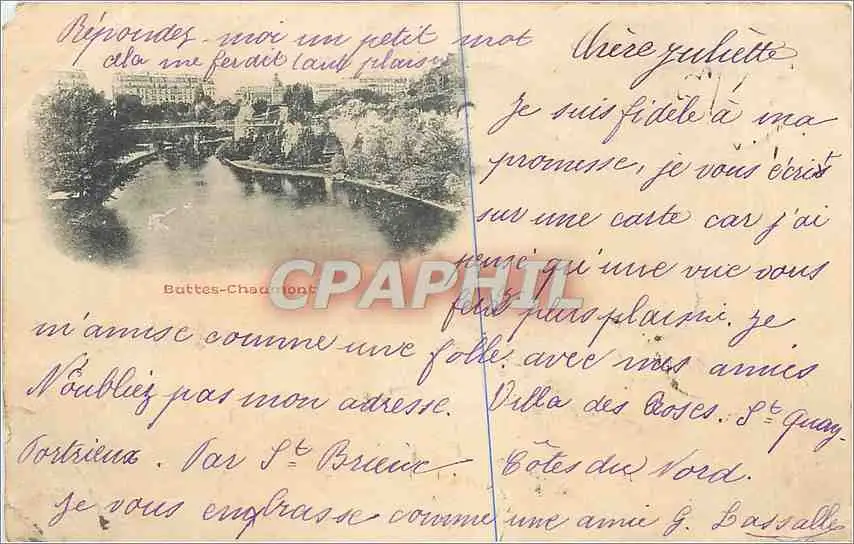 Répondez-moi un petit mot
cela me ferait tant plaisir
Chère Juliette
Je suis fidèle à ma
promesse, je vous écrit
sur une carte car j'ai
pensé qu'une vue vous
ferait plus plaisir. Je
m'amuse comme une folle avec mes amies
N'oubliez pas mon adresse. Villa des Roses. St Quay-
Portrieux. Par St Brieuc. Côtes du Nord.
Je vous embrasse comme une amie G. Lassalle
Buttes-Chaumont
CPAPHIL